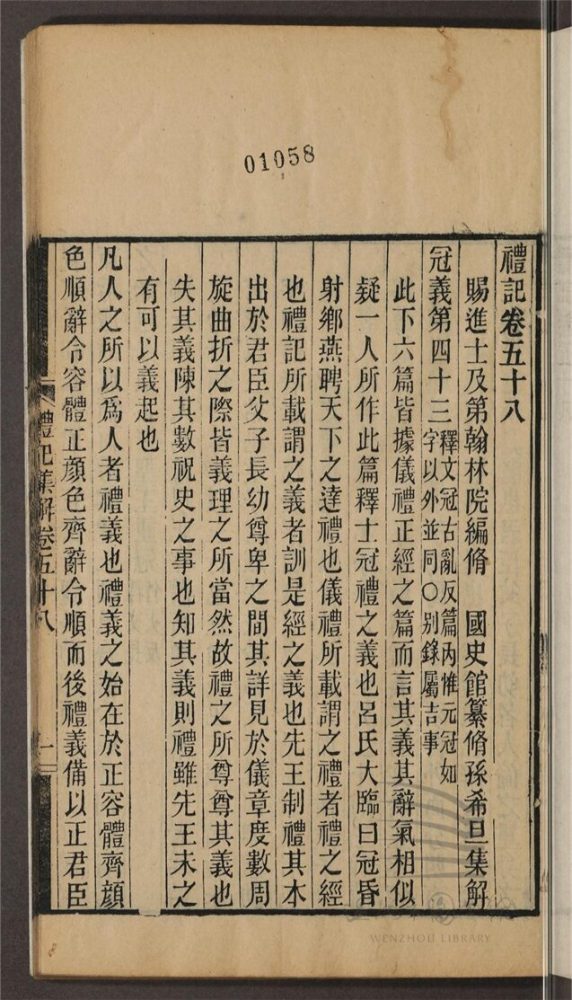 01058
禮記卷五十八
賜進士及第翰林院編脩　國史館纂脩孫希旦集解
冠義第四十三釋文冠古亂反篇內惟元冠如
字以外並同○別錄屬吉事
此下六篇皆據儀禮正經之篇而言其義其辭氣相似
疑一人所作此篇釋士冠禮之義也呂氏大臨曰冠昏
射鄉燕聘天下之達禮也儀禮所載謂之禮者禮之經
也禮記所載謂之義者訓是經之義也先王制禮其本
出於君臣父子長幼尊卑之間其詳見於儀章度數周
旋曲折之際皆義理之所當然故禮之所尊尊其義也
失其義陳其數祝史之事也知其義則禮雖先王未之
有可以義起也
凡人之所以爲人者禮義也禮義之始在於正容體齊顏
色順辭令容體正顏色齊辭令順而後禮義備以正君臣
禮記集解卷五十八
一
WENZHOU LIBRARY